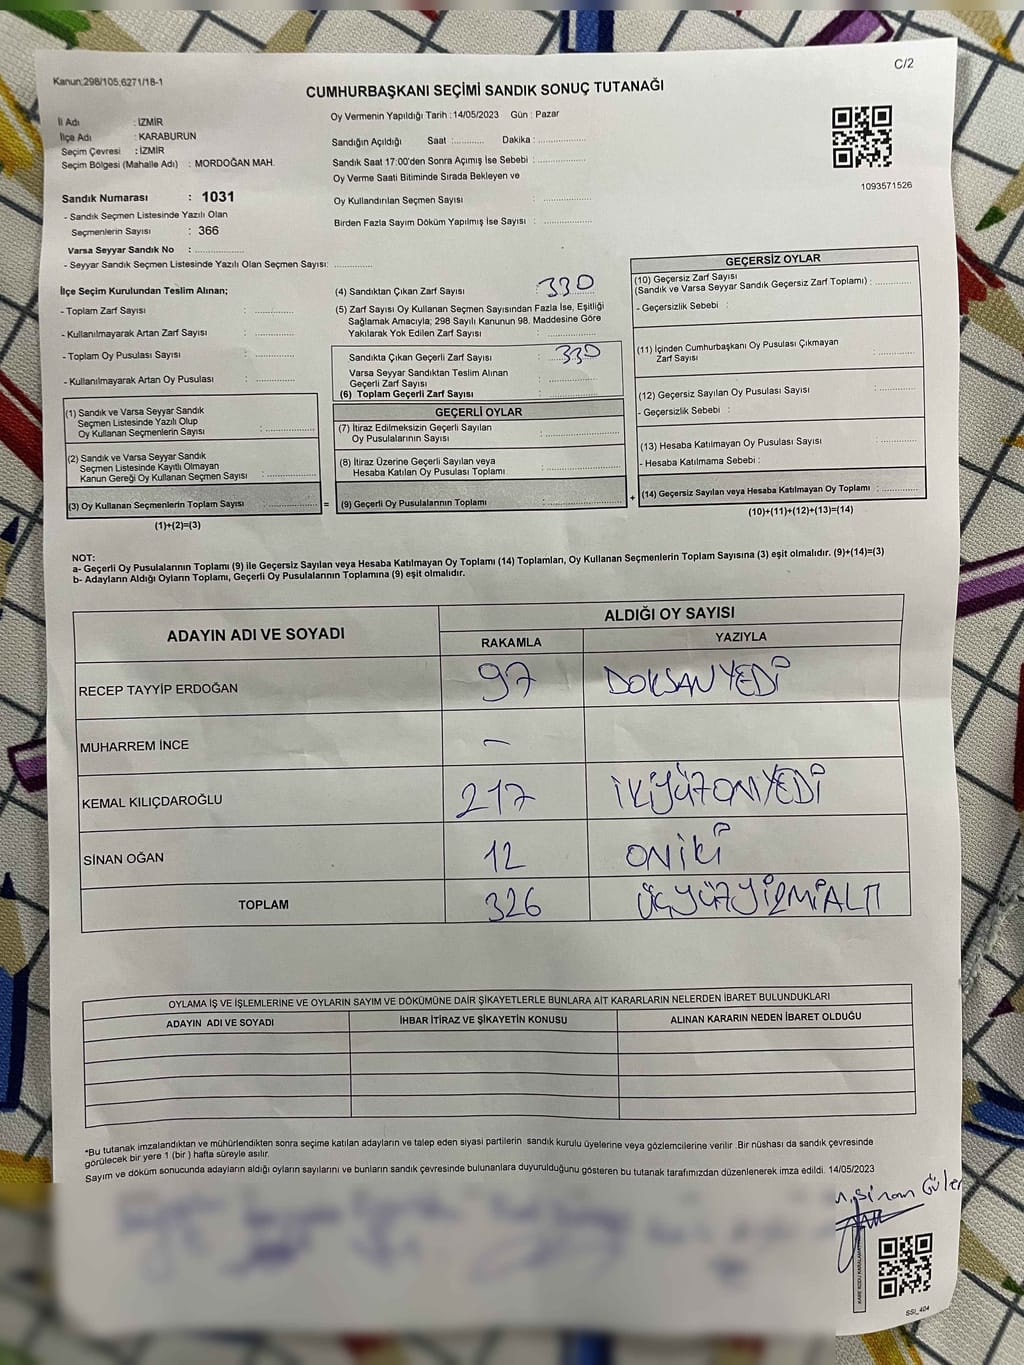 Kanun:298/105,6271/18-1
C/2
CUMHURBAŞKANI SEÇİMİ SANDIK SONUÇ TUTANAĞI
İl Adı : İZMİR
İlçe Adı : KARABURUN
Seçim Çevresi : İZMİR
Seçim Bölgesi (Mahalle Adı) : MORDOĞAN MAH.
Sandık Numarası : 1031
- Sandık Seçmen Listesinde Yazılı Olan
Seçmenlerin Sayısı : 366
Varsa Seyyar Sandık No : ..............
- Seyyar Sandık Seçmen Listesinde Yazılı Olan Seçmen Sayısı: ............
Oy Vermenin Yapıldığı Tarih : 14/05/2023 Gün : Pazar
Sandığın Açıldığı Saat :.......... Dakika : ..............
Sandık Saat 17:00'den Sonra Açımış İse Sebebi : ..............
Oy Verme Saati Bitiminde Sırada Bekleyen ve
Oy Kullandırılan Seçmen Sayısı : ..............
Birden Fazla Sayım Döküm Yapılmış İse Sayısı : ..............
1093571526
İlçe Seçim Kurulundan Teslim Alınan;
- Toplam Zarf Sayısı : ............
- Kullanılmayarak Artan Zarf Sayısı : ............
- Toplam Oy Pusulası Sayısı : ............
- Kullanılmayarak Artan Oy Pusulası : ............
(1) Sandık ve Varsa Seyyar Sandık
Seçmen Listesinde Yazılı Olup
Oy Kullanan Seçmenlerin Sayısı : ..............
(2) Sandık ve Varsa Seyyar Sandık
Seçmen Listesinde Kayıtlı Olmayan
Kanun Gereği Oy Kullanan Seçmen Sayısı : ..............
(3) Oy Kullanan Seçmenlerin Toplam Sayısı : ..............
(1)+(2)=(3)
(4) Sandıktan Çıkan Zarf Sayısı : 330
(5) Zarf Sayısı Oy Kullanan Seçmen Sayısından Fazla İse, Eşitliği
Sağlamak Amacıyla; 298 Sayılı Kanunun 98. Maddesine Göre
Yakılarak Yok Edilen Zarf Sayısı : ..............
Sandıkta Çıkan Geçerli Zarf Sayısı : 330
Varsa Seyyar Sandıktan Teslim Alınan
Geçerli Zarf Sayısı : ..............
(6) Toplam Geçerli Zarf Sayısı : ..............
GEÇERLİ OYLAR
(7) İtiraz Edilmeksizin Geçerli Sayılan
Oy Pusulalarının Sayısı : ..............
(8) İtiraz Üzerine Geçerli Sayılan veya
Hesaba Katılan Oy Pusulası Toplamı : ..............
= (9) Geçerli Oy Pusulalarının Toplamı : ..............
GEÇERSİZ OYLAR
(10) Geçersiz Zarf Sayısı
(Sandık ve Varsa Seyyar Sandık Geçersiz Zarf Toplamı) : ............
- Geçersizlik Sebebi :
(11) İçinden Cumhurbaşkanı Oy Pusulası Çıkmayan
Zarf Sayısı : ............
(12) Geçersiz Sayılan Oy Pusulası Sayısı : ............
- Geçersizlik Sebebi :
(13) Hesaba Katılmayan Oy Pusulası Sayısı : ............
- Hesaba Katılmama Sebebi :
+ (14) Geçersiz Sayılan veya Hesaba Katılmayan Oy Toplamı : ............
(10)+(11)+(12)+(13)=(14)
NOT:
a- Geçerli Oy Pusulalarının Toplamı (9) ile Geçersiz Sayılan veya Hesaba Katılmayan Oy Toplamı (14) Toplamları, Oy Kullanan Seçmenlerin Toplam Sayısına (3) eşit olmalıdır. (9)+(14)=(3)
b- Adayların Aldığı Oyların Toplamı, Geçerli Oy Pusulalarının Toplamına (9) eşit olmalıdır.
ADAYIN ADI VE SOYADI ALDIĞI OY SAYISI
RAKAMLA YAZIYLA
RECEP TAYYİP ERDOĞAN 97 DOKSANYEDİ
MUHARREM İNCE -
KEMAL KILIÇDAROĞLU 217 İKİYÜZONYEDİ
SİNAN OĞAN 12 ONİKİ
TOPLAM 326 ÜÇYÜZYİRMİALTI
OYLAMA İŞ VE İŞLEMLERİNE VE OYLARIN SAYIM VE DÖKÜMÜNE DAİR ŞİKAYETLERLE BUNLARA AİT KARARLARIN NELERDEN İBARET BULUNDUKLARI
ADAYIN ADI VE SOYADI İHBAR İTİRAZ VE ŞİKAYETİN KONUSU ALINAN KARARIN NEDEN İBARET OLDUĞU
*Bu tutanak imzalandıktan ve mühürlendikten sonra seçime katılan adayların ve talep eden siyasi partilerin sandık kurulu üyelerine veya gözlemcilerine verilir .Bir nüshası da sandık çevresinde
görülecek bir yere 1 (bir ) hafta süreyle asılır.
Sayım ve döküm sonucunda adayların aldığı oyların sayılarını ve bunların sandık çevresinde bulunanlara duyurulduğunu gösteren bu tutanak tarafımızdan düzenlenerek imza edildi. 14/05/2023
Sinan Güler
SSL_404